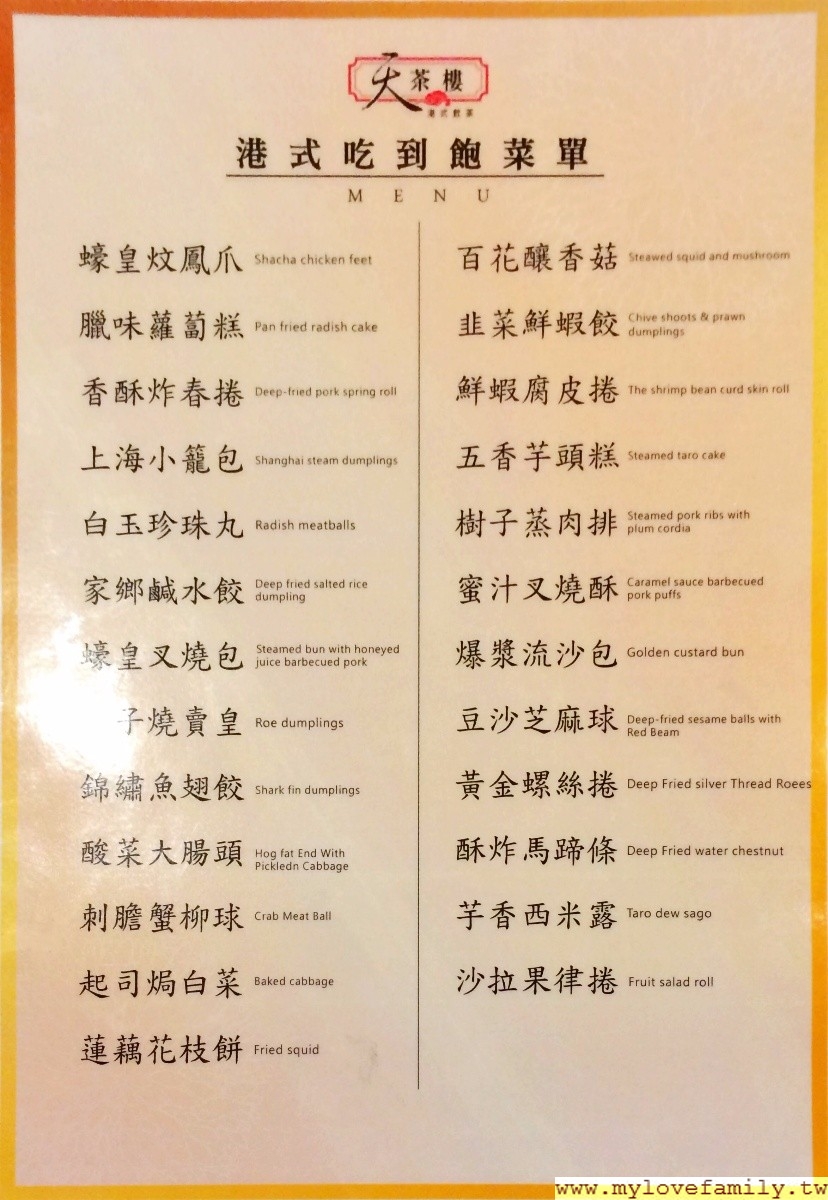 天茶樓
港式飲茶
港式吃到飽菜單
MENU
蠔皇炆鳳爪 Shacha chicken feet
臘味蘿蔔糕 Pan fried radish cake
香酥炸春捲 Deep-fried pork spring roll
上海小籠包 Shanghai steam dumplings
白玉珍珠丸 Radish meatballs
家鄉鹹水餃 Deep fried salted rice
dumpling
蠔皇叉燒包 Steamed bun with honeyed
juice barbecued pork
子燒賣皇 Roe dumplings
錦繡魚翅餃 Shark fin dumplings
酸菜大腸頭 Hog fat End With
Pickledn Cabbage
刺膽蟹柳球 Crab Meat Ball
起司焗白菜 Baked cabbage
蓮藕花枝餅 Fried squid
百花釀香菇 Steawed squid and mushroom
韭菜鮮蝦餃 Chive shoots & prawn
dumplings
鮮蝦腐皮捲 The shrimp bean curd skin roll
五香芋頭糕 Steamed taro cake
樹子蒸肉排 Steamed pork ribs with
plum cordia
蜜汁叉燒酥 Caramel sauce barbecued
pork puffs
爆漿流沙包 Golden custard bun
豆沙芝麻球 Deep-fried sesame balls with
Red Beam
黃金螺絲捲 Deep Fried silver Thread Roees
酥炸馬蹄條 Deep Fried water chestnut
芋香西米露 Taro dew sago
沙拉果律捲 Fruit salad roll
www.mylovefamily.tw